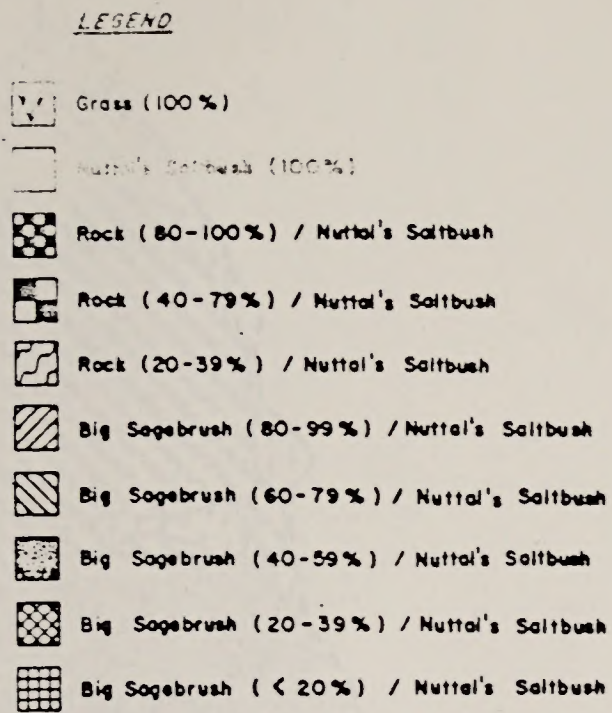 LEGEND
Grass (100%)
Nuttal's Saltbush (100%)
Rock (80-100%) / Nuttal's Saltbush
Rock (40-79%) / Nuttal's Saltbush
Rock (20-39%) / Nuttal's Saltbush
Big Sagebrush (80-99%) / Nuttal's Saltbush
Big Sagebrush (60-79%) / Nuttal's Saltbush
Big Sagebrush (40-59%) / Nuttal's Saltbush
Big Sagebrush (20-39%) / Nuttal's Saltbush
Big Sagebrush (< 20%) / Nuttal's Saltbush